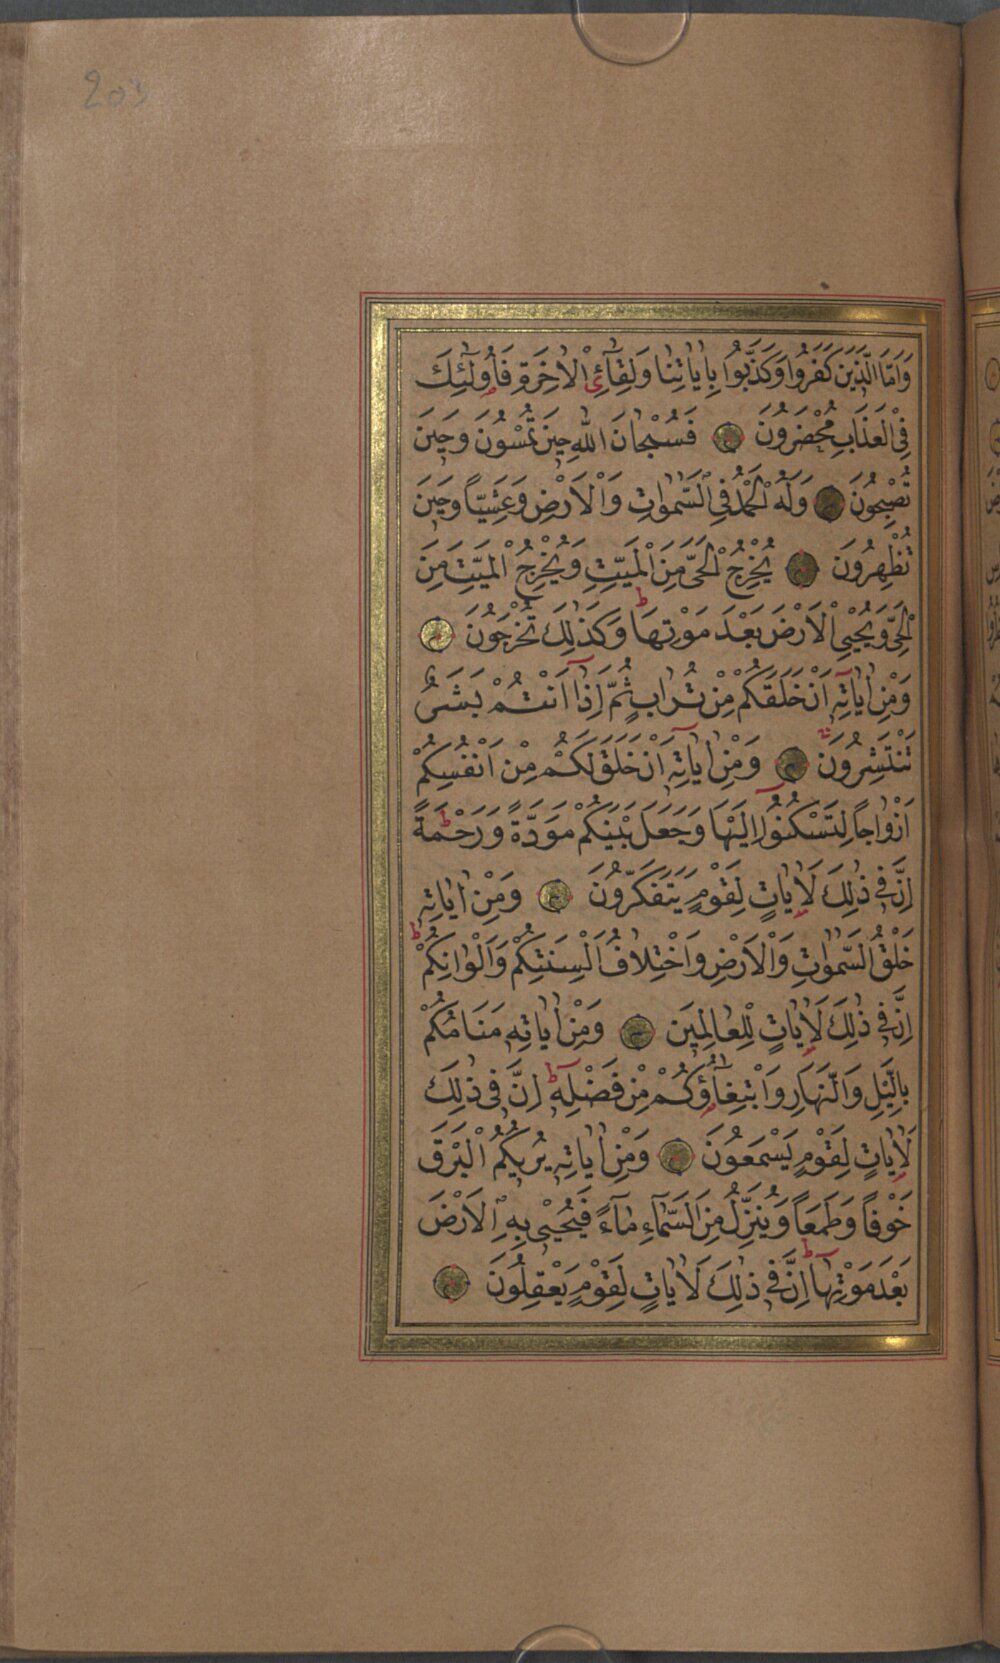 203
وَاَمَّا الَّذ۪ينَ كَفَرُوا وَكَذَّبُوا بِاٰيَاتِنَا وَلِقَآئِ الْاٰخِرَةِ فَاُولٰٓئِكَ
فِي الْعَذَابِ مُحْضَرُونَ فَسُبْحَانَ اللّٰهِ ح۪ينَ تُمْسُونَ وَح۪ينَ
تُصْبِحُونَ وَلَهُ الْحَمْدُ فِي السَّمٰوَاتِ وَالْاَرْضِ وَعَشِيًّا وَح۪ينَ
تُظْهِرُونَ يُخْرِجُ الْحَيَّ مِنَ الْمَيِّتِ وَيُخْرِجُ الْمَيِّتَ مِنَ
الْحَيِّ وَيُحْيِي الْاَرْضَ بَعْدَ مَوْتِهَا ط وَكَذٰلِكَ تُخْرَجُونَ
وَمِنْ اٰيَاتِه۪ٓ اَنْ خَلَقَكُمْ مِنْ تُرَابٍ ثُمَّ اِذَٓا اَنْتُمْ بَشَرٌ
تَنْتَشِرُونَ وَمِنْ اٰيَاتِه۪ٓ اَنْ خَلَقَ لَكُمْ مِنْ اَنْفُسِكُمْ
اَزْوَاجًا لِتَسْكُنُٓوا اِلَيْهَا وَجَعَلَ بَيْنَكُمْ مَوَدَّةً وَرَحْمَةً ط
اِنَّ ف۪ي ذٰلِكَ لَاٰيَاتٍ لِقَوْمٍ يَتَفَكَّرُونَ وَمِنْ اٰيَاتِه۪
خَلْقُ السَّمٰوَاتِ وَالْاَرْضِ وَاخْتِلَافُ اَلْسِنَتِكُمْ وَاَلْوَانِكُمْ ط
اِنَّ ف۪ي ذٰلِكَ لَاٰيَاتٍ لِلْعَالِم۪ينَ وَمِنْ اٰيَاتِه۪ مَنَامُكُمْ
بِالَّيْلِ وَالنَّهَارِ وَابْتِغَآؤُكُمْ مِنْ فَضْلِه۪ ط اِنَّ ف۪ي ذٰلِكَ
لَاٰيَاتٍ لِقَوْمٍ يَسْمَعُونَ وَمِنْ اٰيَاتِه۪ يُر۪يكُمُ الْبَرْقَ
خَوْفًا وَطَمَعًا وَيُنَزِّلُ مِنَ السَّمَآءِ مَآءً فَيُحْي۪ي بِهِ الْاَرْضَ
بَعْدَ مَوْتِهَا ط اِنَّ ف۪ي ذٰلِكَ لَاٰيَاتٍ لِقَوْمٍ يَعْقِلُونَ